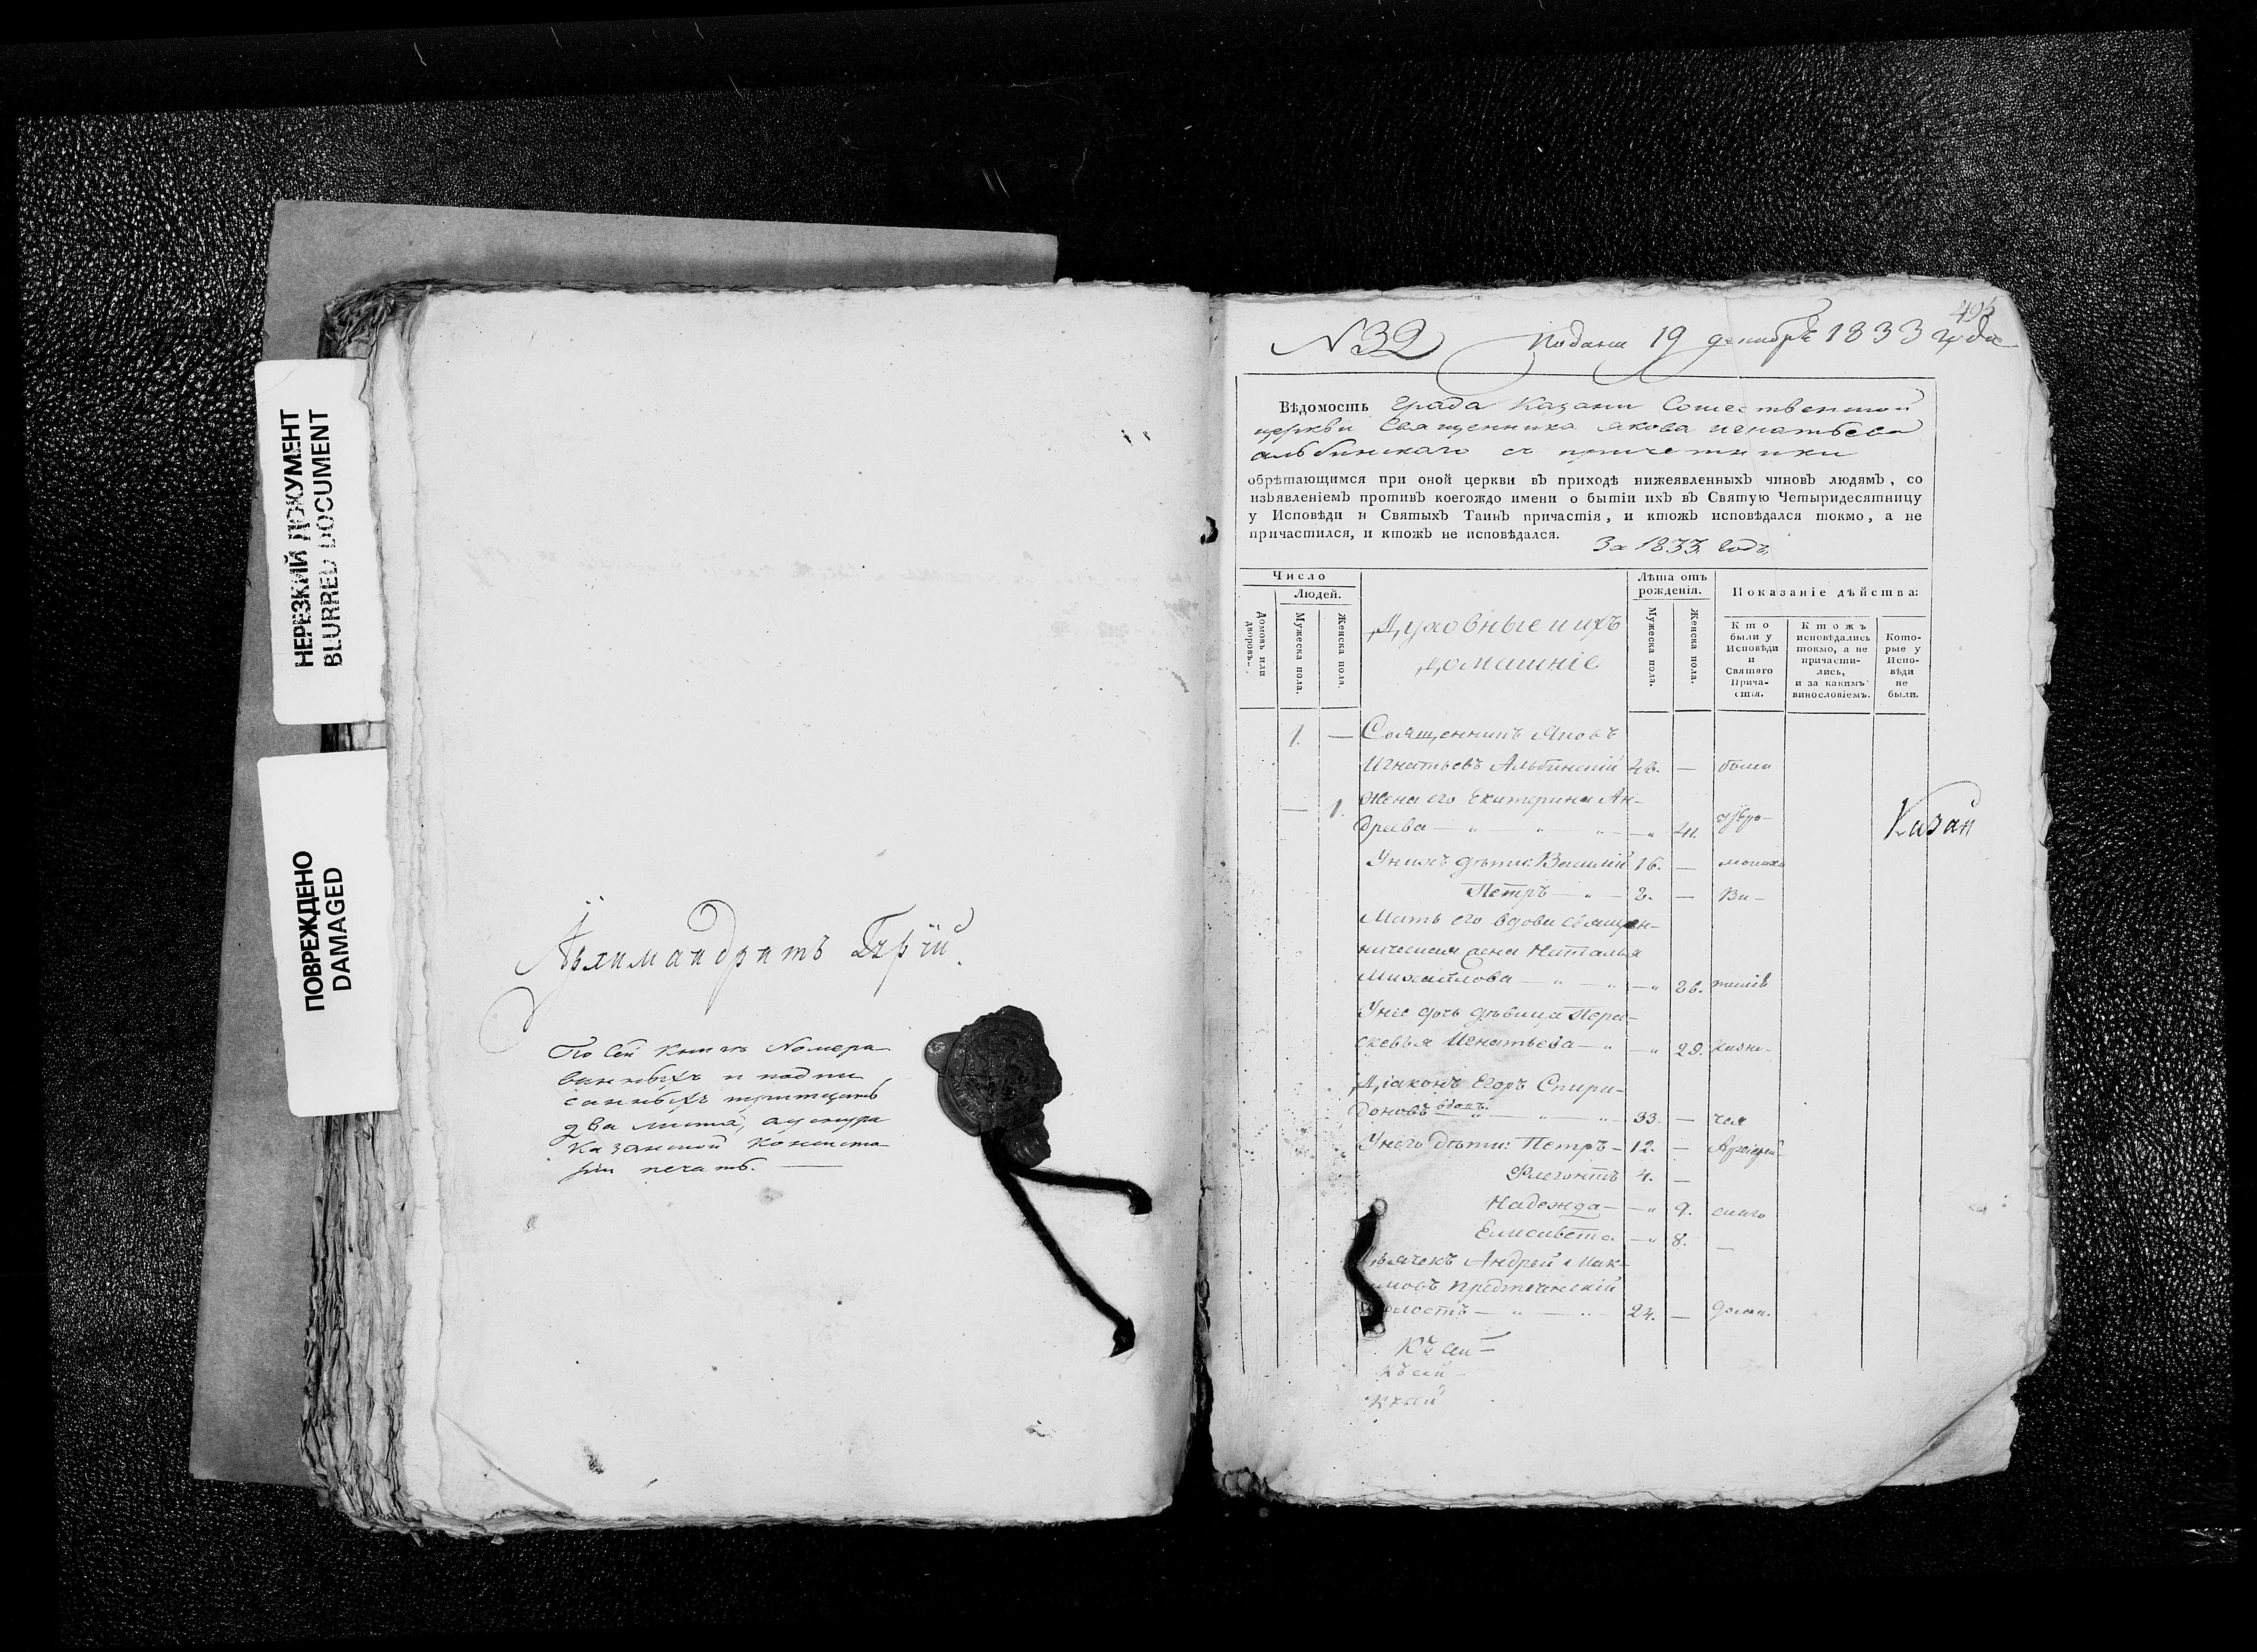 НЕРЕЗКИЙ ДОКУМЕНТ
BLURRED DOCUMENT
ПОВРЕЖДЕНО
DAMAGED
Архимандритъ Гурій
По сей книгѣ номеро
ванныхъ и подпи
санныхъ тритцать
два листа,
Казанской Консисто
ріи печать.
N32 Подана 19 декабря 1833 года
Вѣдомость Града Казани Сошественской
церкви Священника Якова Игнатьева
Альбинскаго съ причетники
обрѣтающимся при оной церкви въ приходѣ нижеявленныхъ чиновъ людямъ, со
изъявленіемъ противъ коегождо имени о бытіи ихъ въ Святую Четыридесятницу
у Исповѣди и Святыхъ Таинъ причастія, и ктожъ исповѣдался токмо, а не
причастился, и ктожъ не исповѣдался.
За 1833 годъ
Число
Людей.
Домовъ или дворовъ.
Мужеска пола.
Женска пола.
Духовные и ихъ
домашніе
Лѣта отъ
рожденія.
Мужеска пола.
Женска пола.
Показаніе дѣйства:
Кто
были у
Исповѣди
и
Святаго
Прича-
стія.
Ктожъ
исповѣдались
токмо, а не
причасти-
лись,
и за какимъ
винословіемъ.
Кото-
рые у
Испо-
вѣди
не
были.
1. — Священникъ Яковъ
Игнатьевъ Альбинскій 48. —
— 1. Жена его Екатерина Ан-
дреева — 41.
У нихъ дѣти: Василій 16. —
Петръ — 2. —
Мать его вдова священ-
ническая жена Наталья
Михайлова —
У нее дочь дѣвица Пара-
скевья Игнатьева — 29.
Діаконъ Егоръ Спири-
доновъ вдовъ. 33. —
У него дѣти: Петръ — 12. —
Флегонтъ 4. —
Надежда — 9.
Елисавета — 8.
Дьячекъ Андрей Мак-
симовъ Предтеченскій
холостъ — 24. —
Казан
Къ сей
Къ сей
Къ сей